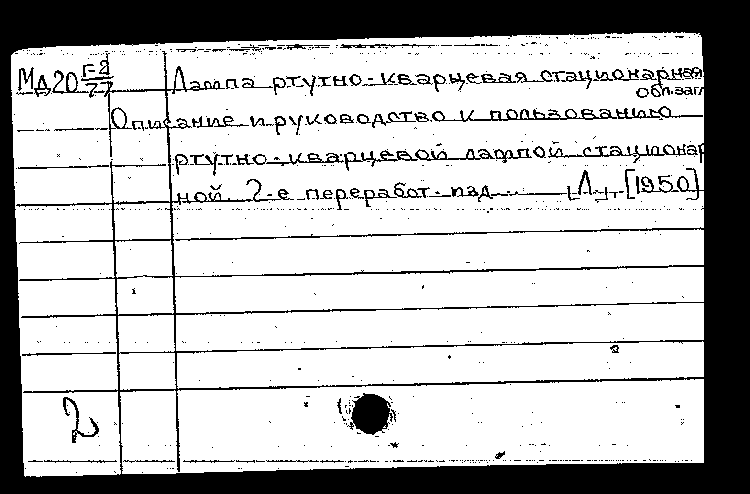 Мд20 Г-8/77 Лампа ртутно-кварцевая стационарная
обл.загл
Описание и руководство к пользованию
ртутно-кварцевой лампой стационар
ной. 2-е переработ. изд... [Л.], [1950]
2